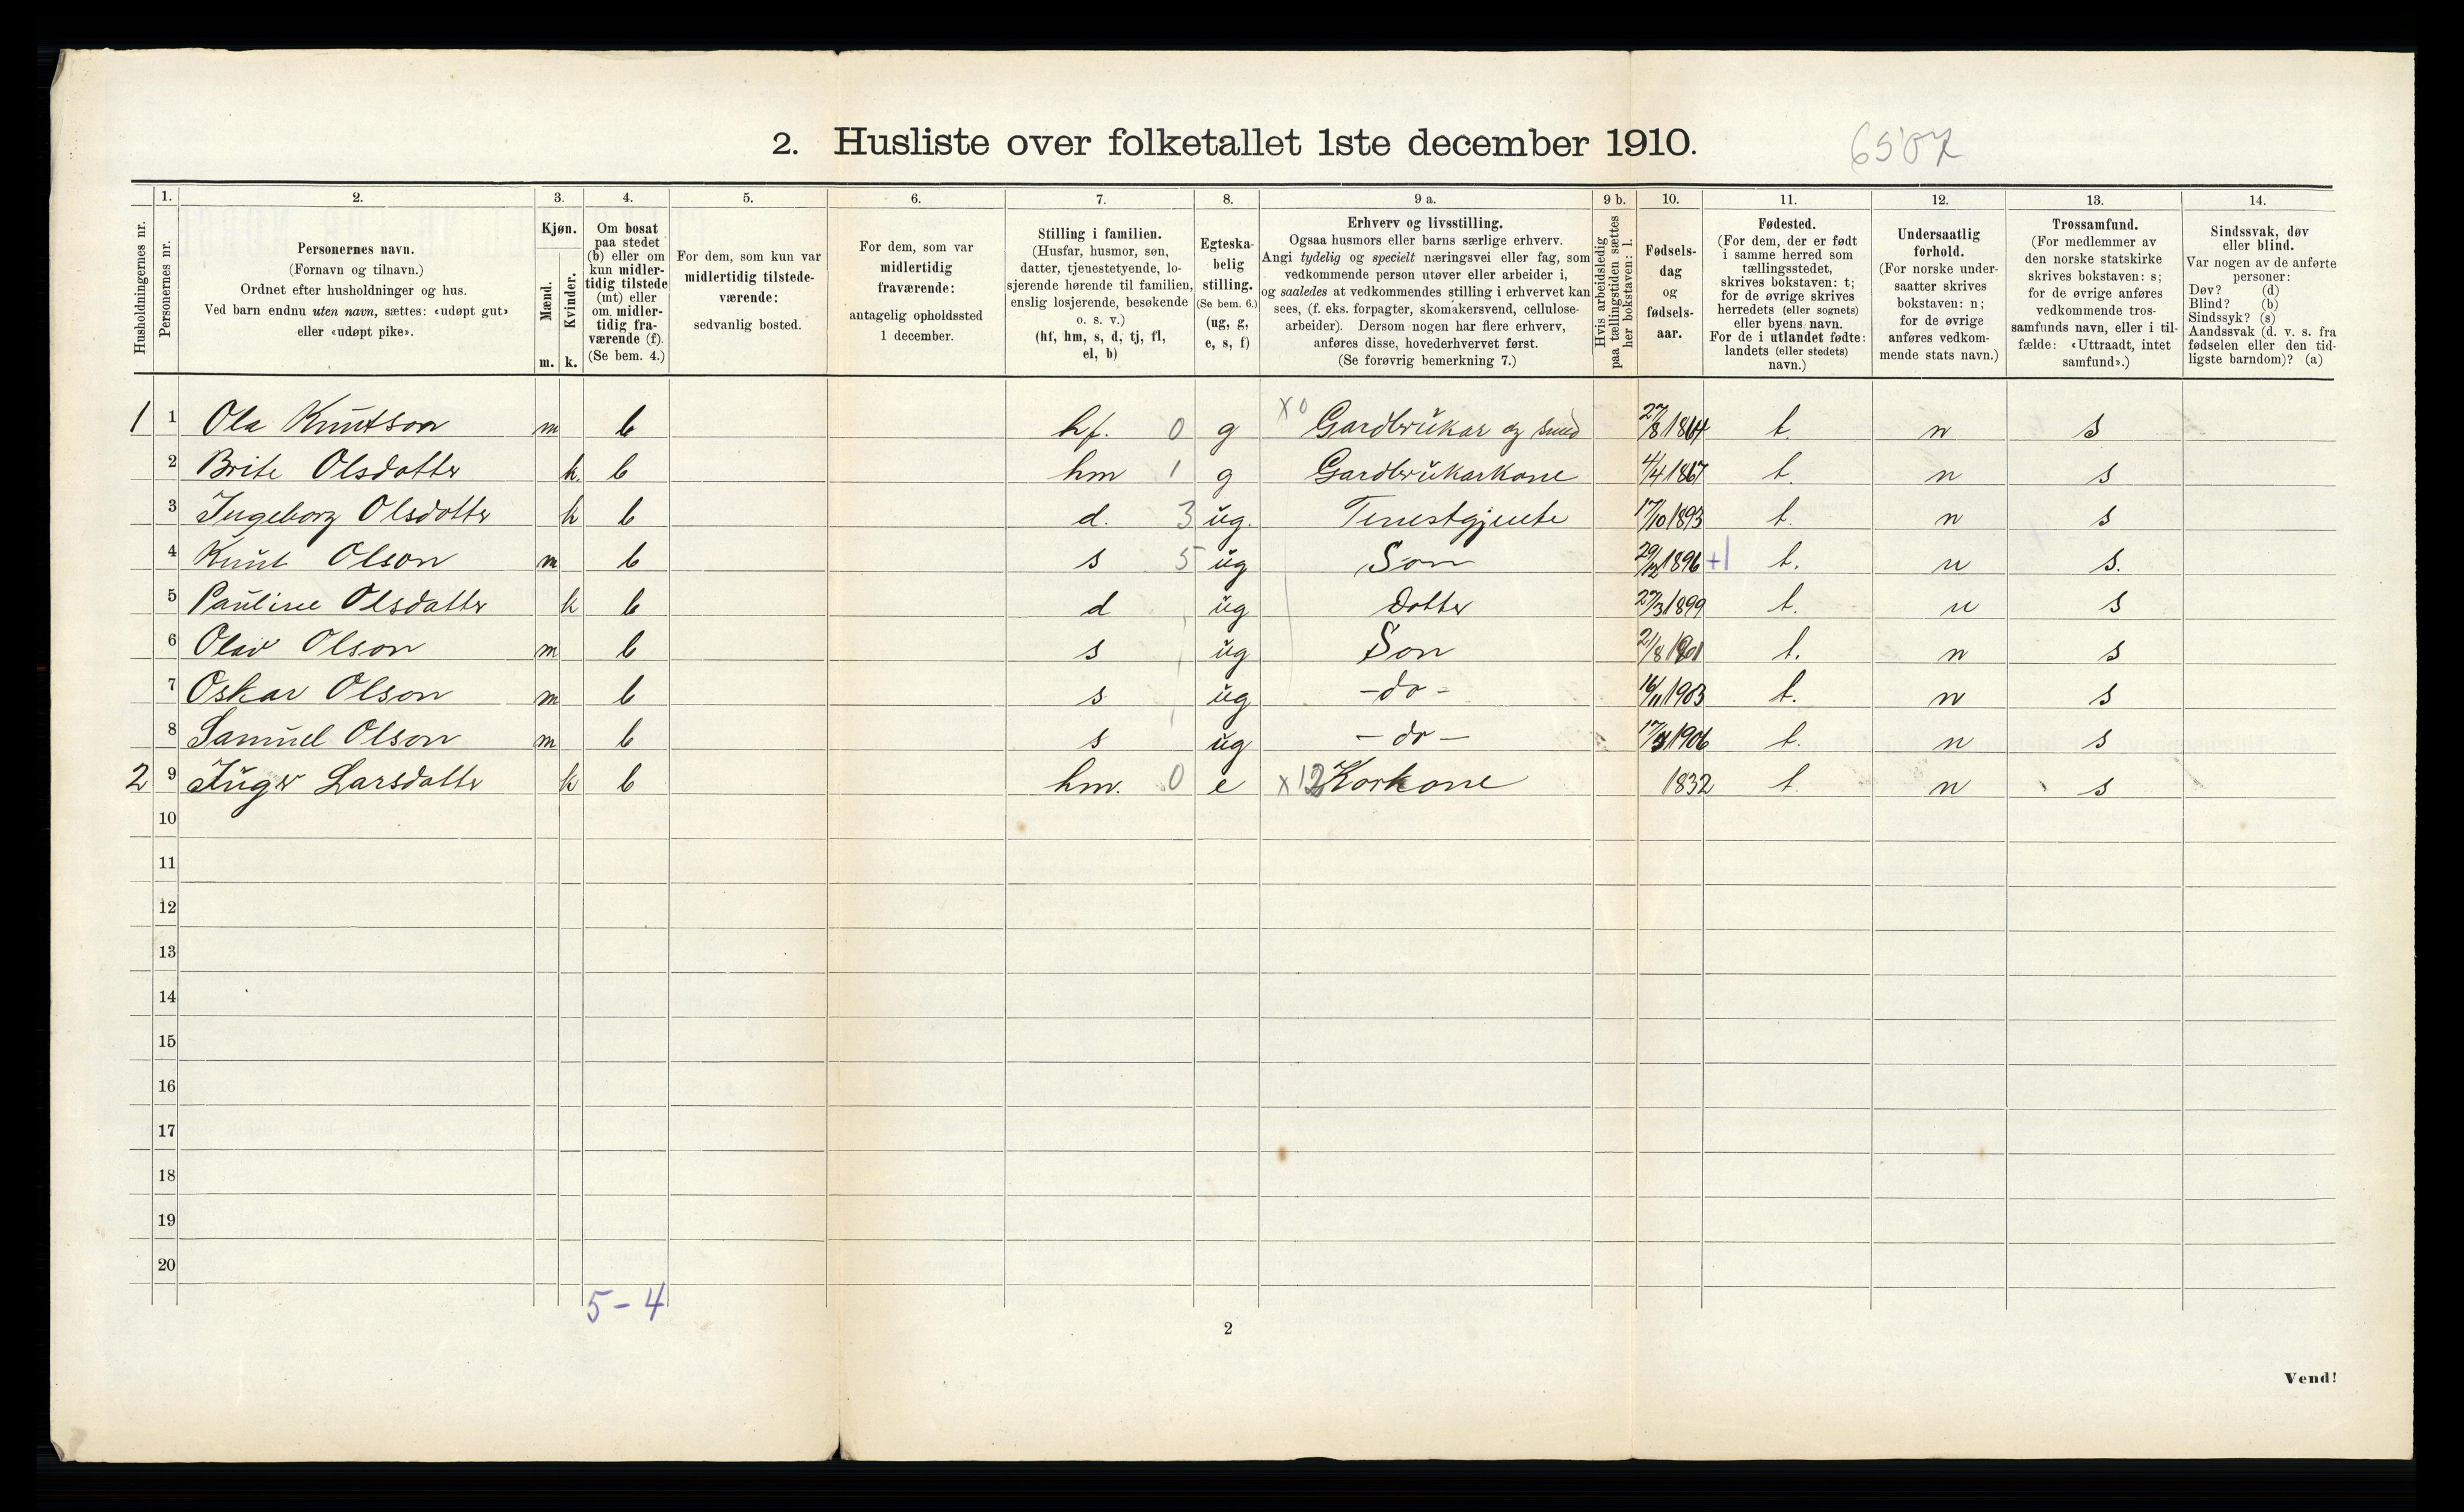 2. Husliste over folketallet 1ste december 1910.
6507
Husholdningernes nr.
1.
Personernes nr.
2.
Personernes navn.
(Fornavn og tilnavn.)
Ordnet efter husholdninger og hus.
Ved barn endnu uten navn, sættes: «udøpt gut»
eller «udøpt pike».
3.
Kjøn.
Mænd.
Kvinder.
m. k.
4.
Om bosat
paa stedet
(b) eller om
kun midler-
tidig tilstede
(mt) eller
om midler-
tidig fra-
værende (f).
(Se bem. 4.)
5.
For dem, som kun var
midlertidig tilstede-
værende:
sedvanlig bosted.
6.
For dem, som var
midlertidig
fraværende:
antagelig opholdssted
1 december.
7.
Stilling i familien.
(Husfar, husmor, søn,
datter, tjenestetyende, lo-
sjerende hørende til familien,
enslig losjerende, besøkende
o. s. v.)
(hf, hm, s, d, tj, fl,
el, b)
8.
Egteska-
belig
stilling.
(Se bem. 6.)
(ug, g,
e, s, f)
9 a.
Erhverv og livsstilling.
Ogsaa husmors eller barns særlige erhverv.
Angi tydelig og specielt næringsvei eller fag, som
vedkommende person utøver eller arbeider i,
og saaledes at vedkommendes stilling i erhvervet kan
sees, (f. eks. forpagter, skomakersvend, cellulose-
arbeider). Dersom nogen har flere erhverv,
anføres disse, hovederhvervet først.
(Se forøvrig bemerkning 7.)
9 b.
Hvis arbeidsledig
paa tællingstiden sættes
her bokstaven: l.
10.
Fødsels-
dag
og
fødsels-
aar.
11.
Fødested.
(For dem, der er født
i samme herred som
tællingsstedet,
skrives bokstaven: t;
for de øvrige skrives
herredets (eller sognets)
eller byens navn.
For de i utlandet fødte:
landets (eller stedets)
navn.)
12.
Undersaatlig
forhold.
(For norske under-
saatter skrives
bokstaven: n;
for de øvrige
anføres vedkom-
mende stats navn.)
13.
Trossamfund.
(For medlemmer av
den norske statskirke
skrives bokstaven: s;
for de øvrige anføres
vedkommende tros-
samfunds navn, eller i til-
fælde: «Uttraadt, intet
samfund».)
14.
Sindssvak, døv
eller blind.
Var nogen av de anførte
personer:
Døv? (d)
Blind? (b)
Sindssyk? (s)
Aandssvak (d. v. s. fra
fødselen eller den tid-
ligste barndom)? (a)
1 1 Ola Knutson m b hf. 0 g x0 Gardbrukar og smed 27/8 1864 t. n s
2 Brite Olsdotter k. b hm 1 g Gardbrukarkone 4/4 1867 t. n s
3 Ingeborg Olsdotter k b d. 3 ug. Tenestgjente 17/10 1893 t. n s
4 Knut Olson m b s 5 ug Son 29/12 1896 +1 t. n s.
5 Pauline Olsdatter k b d ug Dotter 27/3 1899 t. n s
6 Olav Olson m b s ug Son 21/8 1901 t. n s
7 Oskar Olson m b s ug - do - 16/11 1903 t. n s
8 Samuel Olson m b s ug - do - 1906 t. n s
2 9 Inger Larsdatter k b hm. 0 e x12 Korkone 1832 t. n s
10
11
12
13
14
15
16
17
18
19
20
5 - 4
2
Vend!